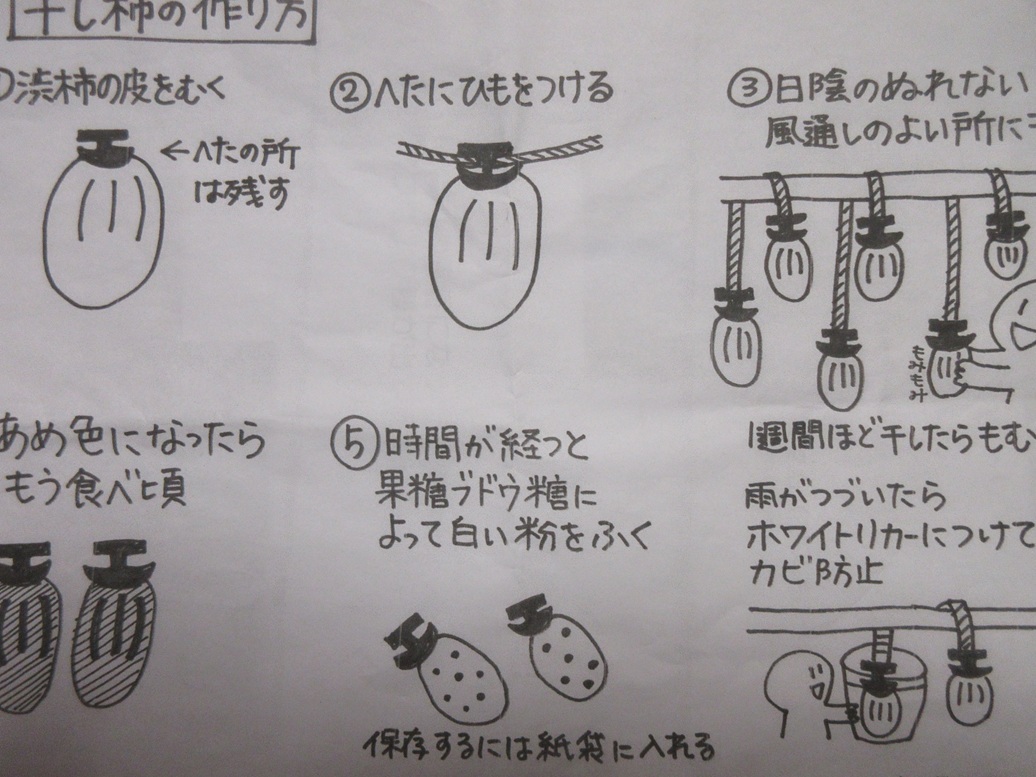 干し柿の作り方
渋柿の皮をむく
←へたの所
は残す
②へたにひもをつける
③日陰のぬれない
風通しのよい所に
もみもみ
1週間ほど干したらもむ
雨がつづいたら
ホワイトリカーにつけて
カビ防止
あめ色になったら
もう食べ頃
⑤時間が経つと
果糖ブドウ糖に
よって白い粉をふく
保存するには紙袋に入れる